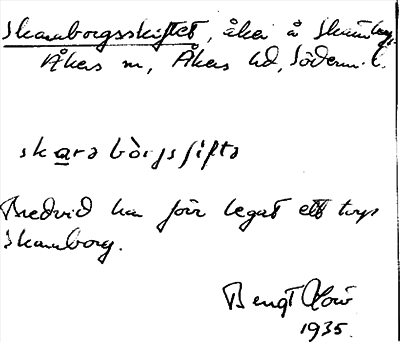 Skamborgsskiftet, åker å Skamby,
Åkers sn, Åkers hd, Söderm. l.
skarabòrgsſifta
Bredvid har förr legat ett torp
Skamborg.
Bengt
1935.